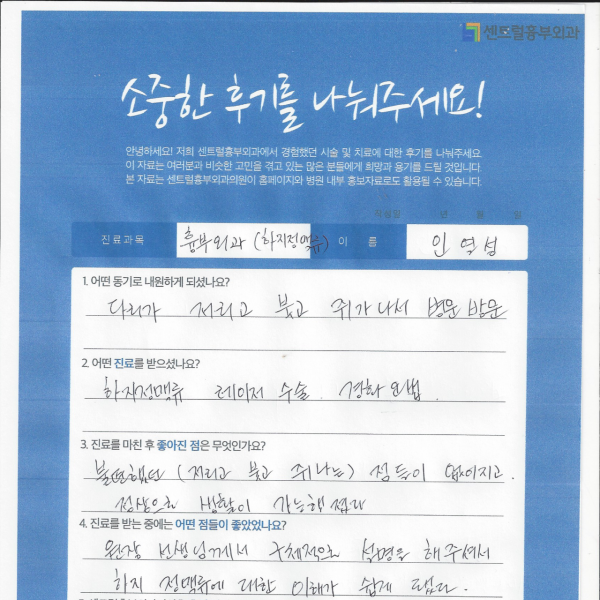 센트럴흉부외과
소중한 후기를 나눠주세요!
안녕하세요! 저희 센트럴흉부외과에서 경험했던 시술 및 치료에 대한 후기를 나눠주세요.
이 자료는 여러분과 비슷한 고민을 겪고 있는 많은 분들에게 희망과 용기를 드릴 것입니다.
본 자료는 센트럴흉부외과의원이 홈페이지와 병원 내부 홍보자료로도 활용될 수 있습니다.
작성일 년 월 일
진료과목 흉부외과 (하지정맥류) 이 름 인 역 섬
1. 어떤 동기로 내원하게 되셨나요?
다리가 저리고 붓고 쥐가 나서 병원 방문
2. 어떤 진료를 받으셨나요?
하지정맥류 레이저 수술. 경화 요법.
3. 진료를 마친 후 좋아진 점은 무엇인가요?
불편했던 (저리고 붓고 쥐나는) 점들이 없어지고.
정상으로 생활이 가능해졌다
4. 진료를 받는 중에는 어떤 점들이 좋았었나요?
원장 선생님께서 구체적으로 설명을 해주셔서
하지 정맥류에 대한 이해가 쉽게 되었다.